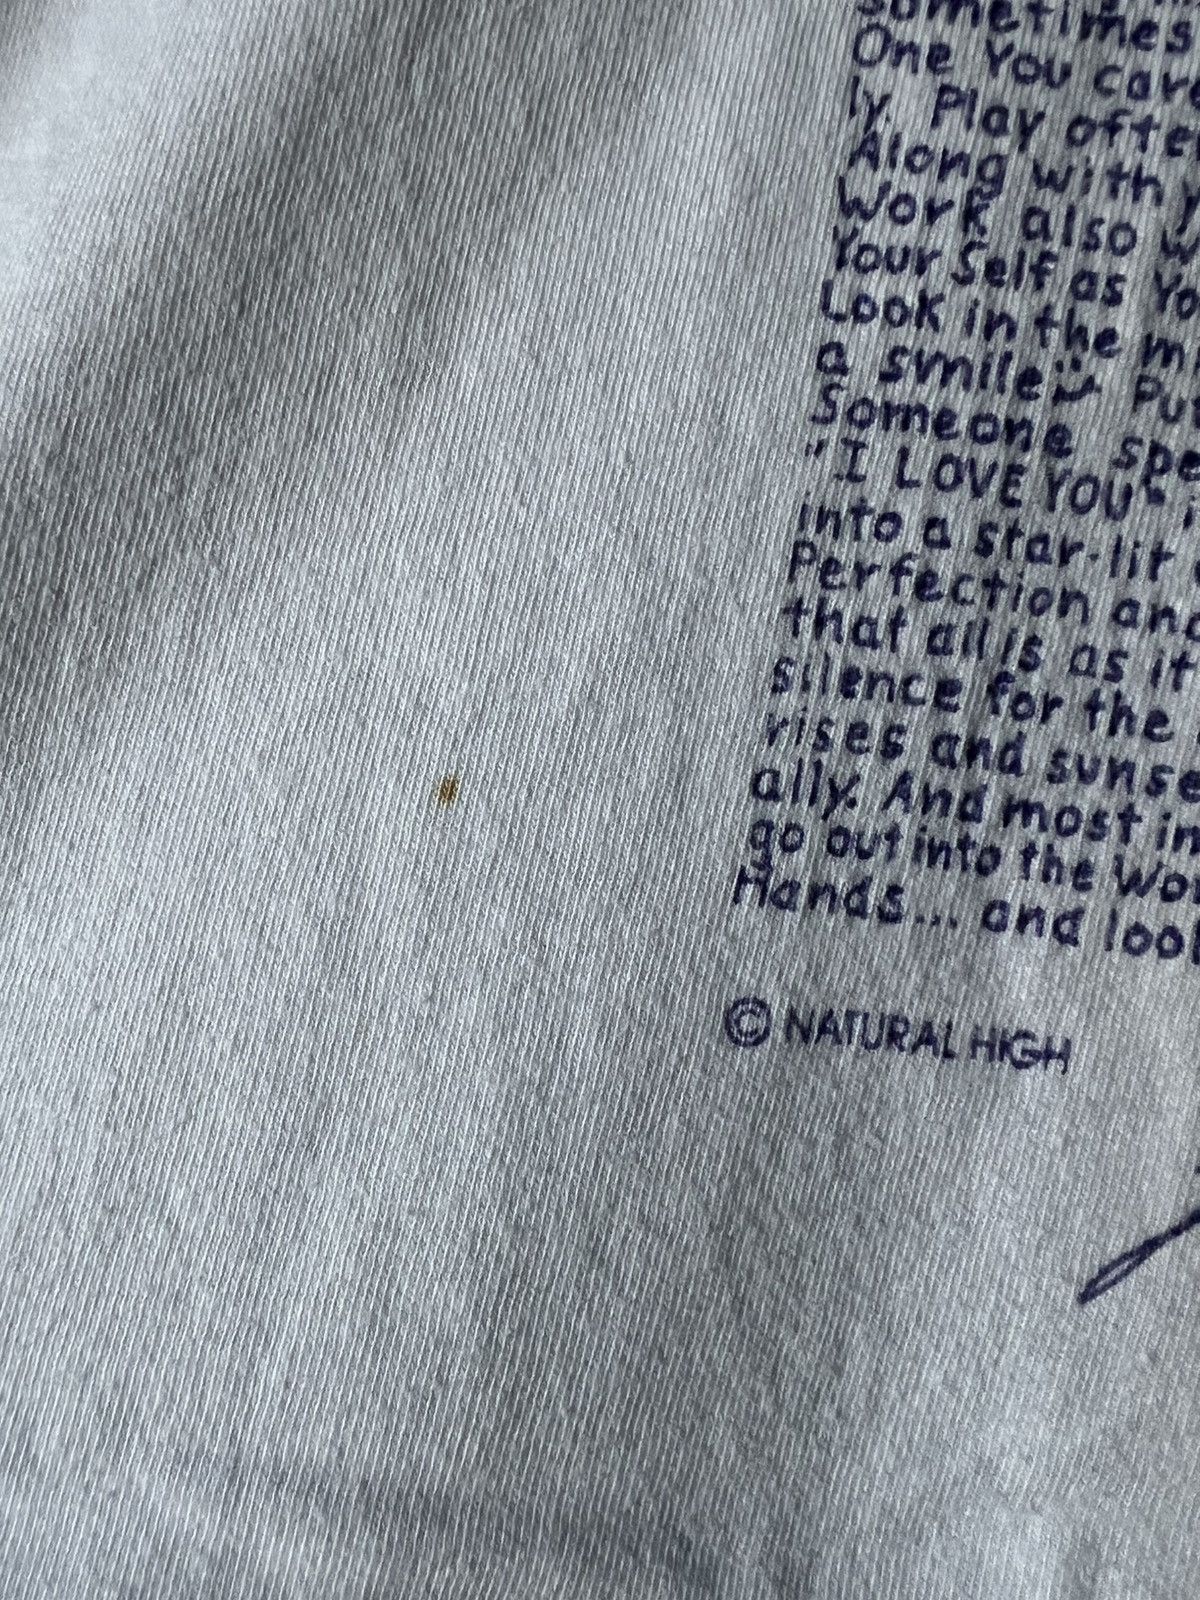 sometimes
One You care
ly. Play ofte
Along with y
Work also w
Your Self as Yo
Look in the mi
a smile Pu
Someone spe
"I LOVE YOU" i
into a star-lit
Perfection and
that all is as it
silence for the
rises and sunse
ally. And most im
go out into the Wo
Hands... and look
© NATURAL HIGH